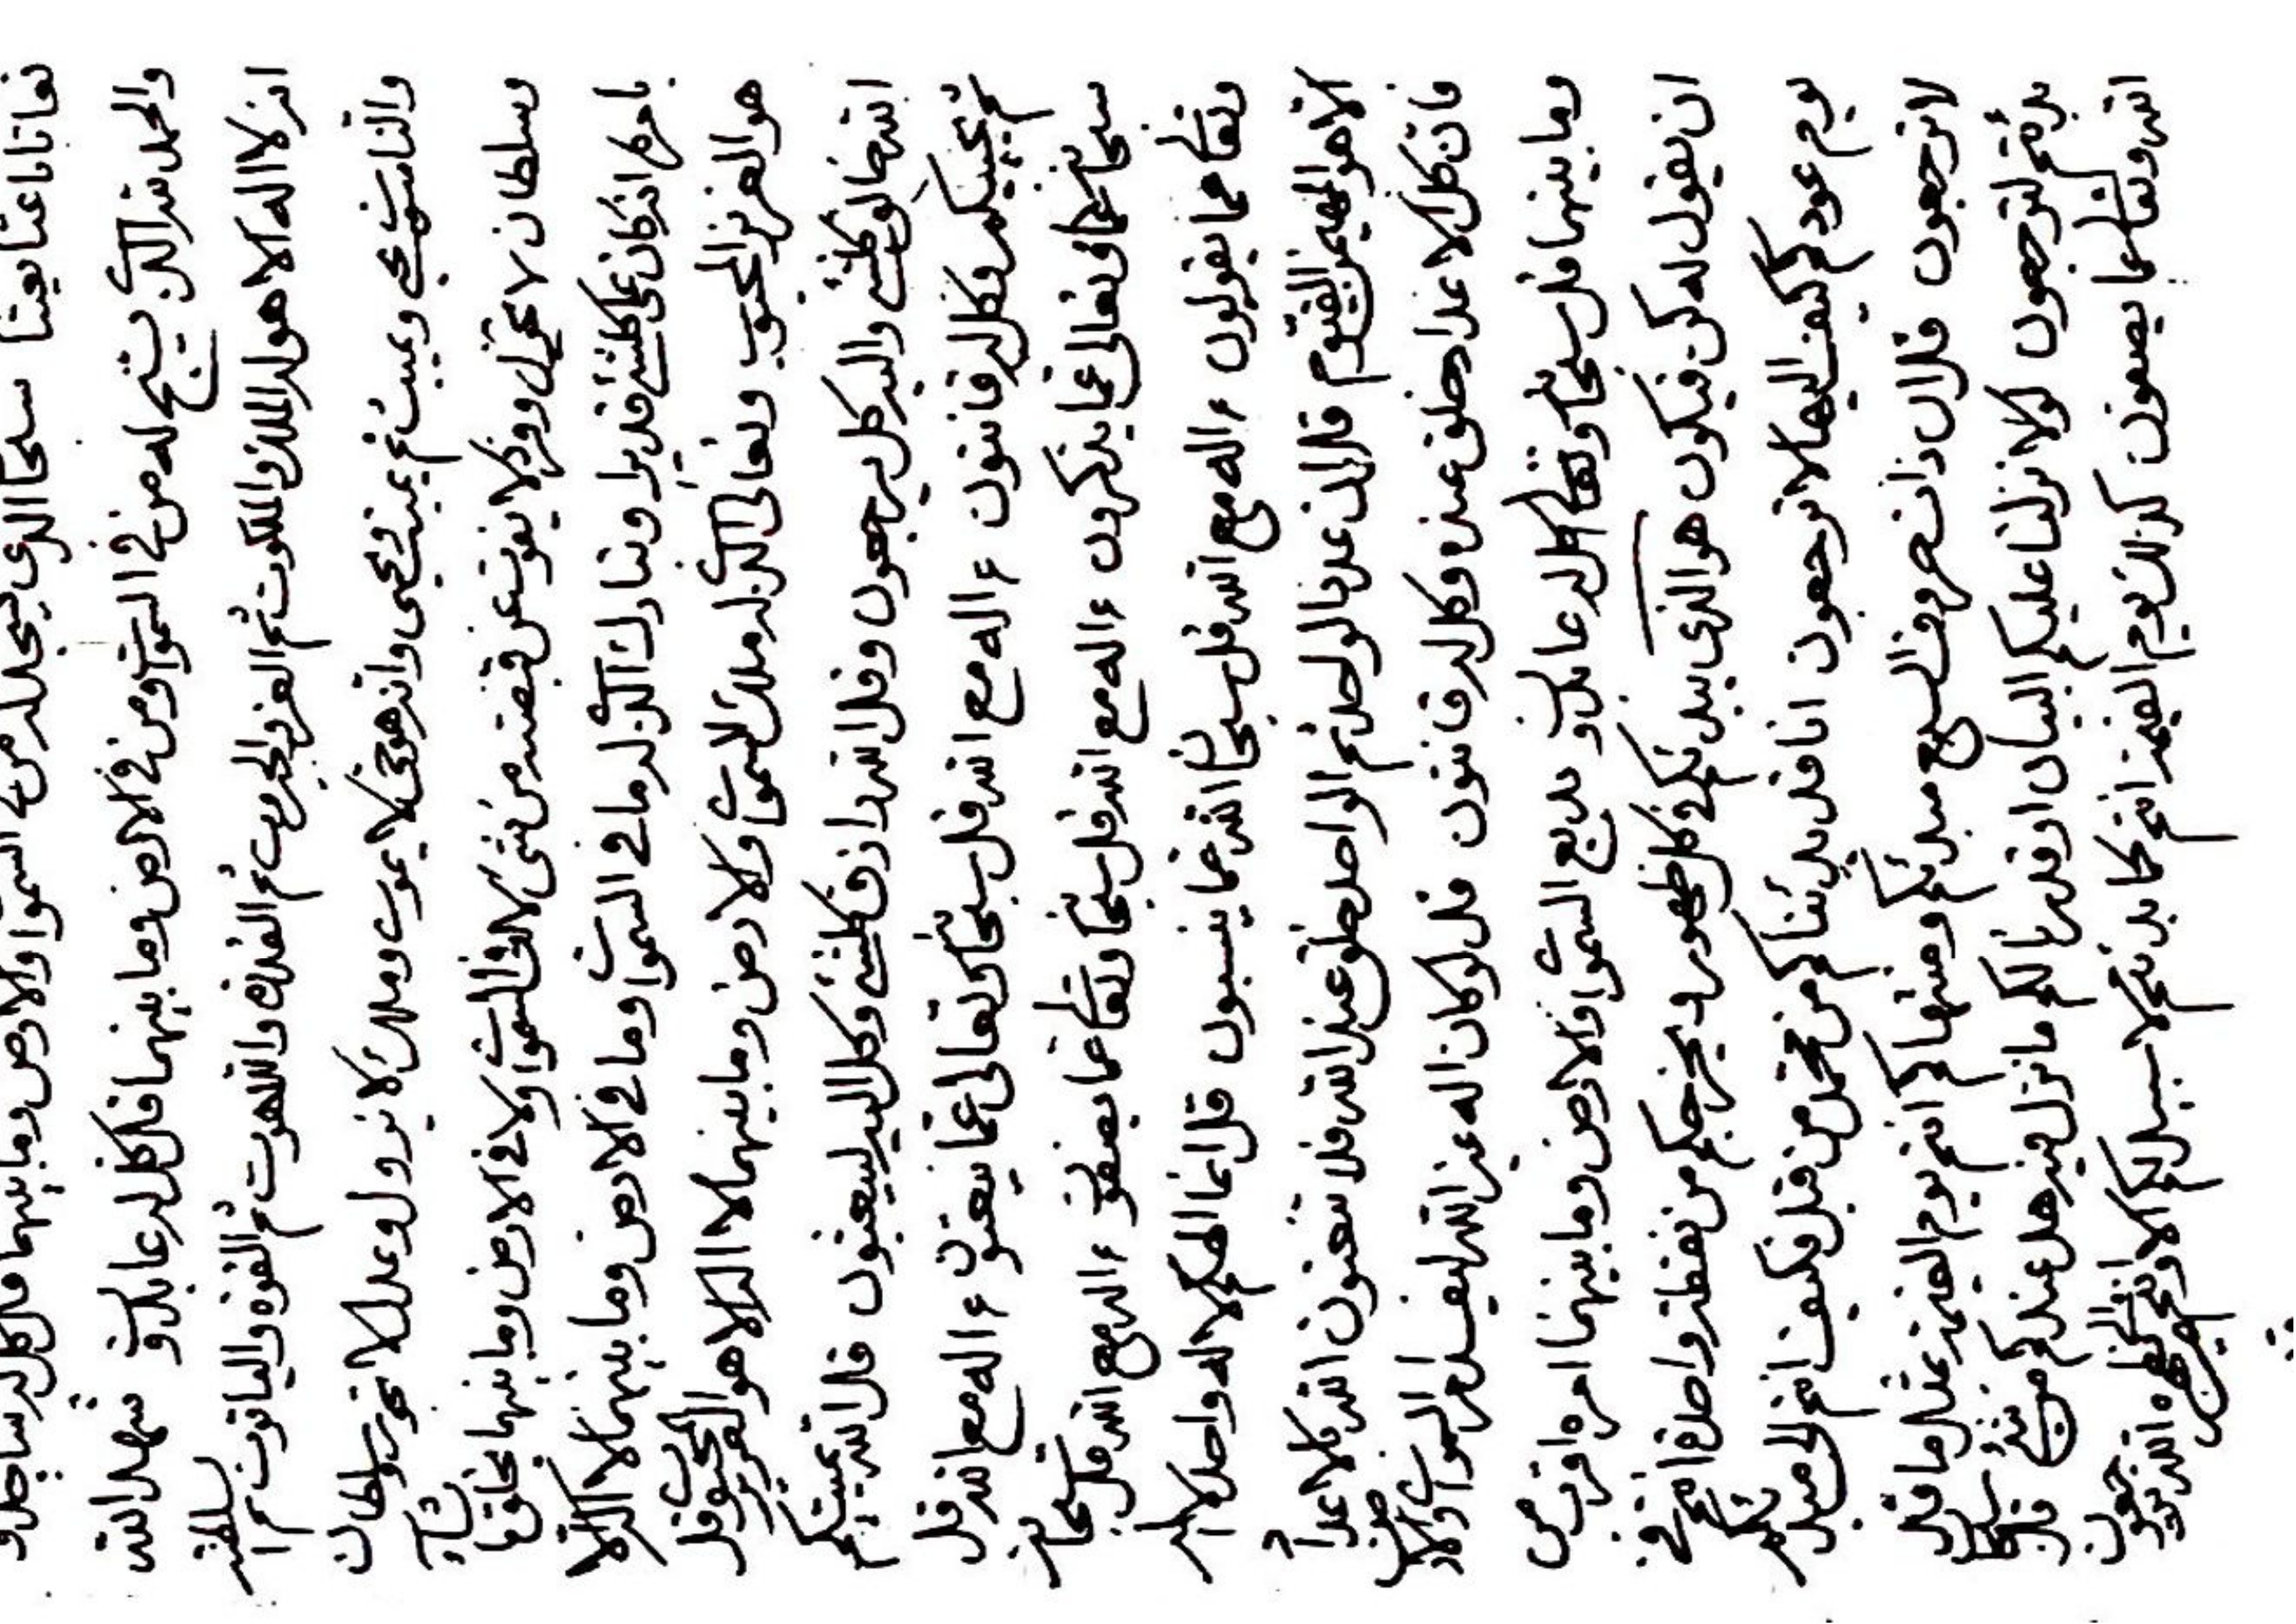 سبحان الذي يسجد له من في السموات والارض وما بينهما قل كل له ساجدو
والحمد لله الذي يسبح له من في السموات ومن في الارض وما بينهما قل كل له عابدو شهد الله
انه لا اله الا هو له الملك والملكوت ثم العز والجبروت ثم القدرة واللاهوت ثم القوة والياقوت ثم السلطنة
والناسوت يحيي ويميت ثم يميت ويحيي وانه هو حي لا يموت وملك لا يزول وعدل لا يجور وسلطان
وسلطان لا يحول وفرد لا يفوت عن قبضته من شئ لا في السموات ولا في الارض وما بينهما يخلق ما يشاء
بامره انه كان على كلشئ قديرا وتبارك الذي له ما في السموات وما في الارض وما بينهما لا اله الا
هو العزيز المحبوب وتعالى الذي له ملك السموات والارض وما بينهما لا اله الا هو العزيز المحبوب قل
الله خالق كلشئ واليه كل يرجعون وقل الله رازق كلشئ وكل اليه ليبعثون قل الله يميتكم
ثم يحييكم وكل له قانتون ءاله مع الله قل سبحانه وتعالى عما يعبدون ءاله مع الله قل
سبحانه وتعالى عما يذكرون ءاله مع الله قل سبحانه وتعالى عما يصفون ءاله مع الله قل سبحانه
وتعالى عما يقولون ءاله مع الله قل سبحان الله عما ينسبون قل انما الهكم لاله واحد لا اله
الا هو المهيمن القيوم قل ان عدد الواحد ثم الواحد خلق عند الله فلا تعبدون الله بالاعداد
فان كل الاعداد خلق عنده وكل له قانتون قل لو كان اله غير الله ليفسد السموات والارض
وما بينهما قل سبحانه وتعالى كل له عابدون بديع السموات والارض وما بينهما امره اقرب من
ان يقول له كن فيكون هو الذي يبدئكم في كل ظهور ويخرجكم من نفظة واحدة افي
يوم عودكم كيف اليها لا ترجعون انا قد بدئناكم من محمد من قبل فكيف انتم الى مبدئكم
لا ترجعون قل ان ذات حروف السبع مبدئكم ومنتهاكم انتم يوم القيمة بمثل ما قد
بدئتم لترجعون لولا نزلنا عليكم البيان او قدرنا لكم ما نزل فيه هل عندكم من شئ قل سبحان
الله وتعالى عما يصفون كذلك يوم القيمة انتم كما بدئتم لا سبيل لكم الا وانتم ترجعون